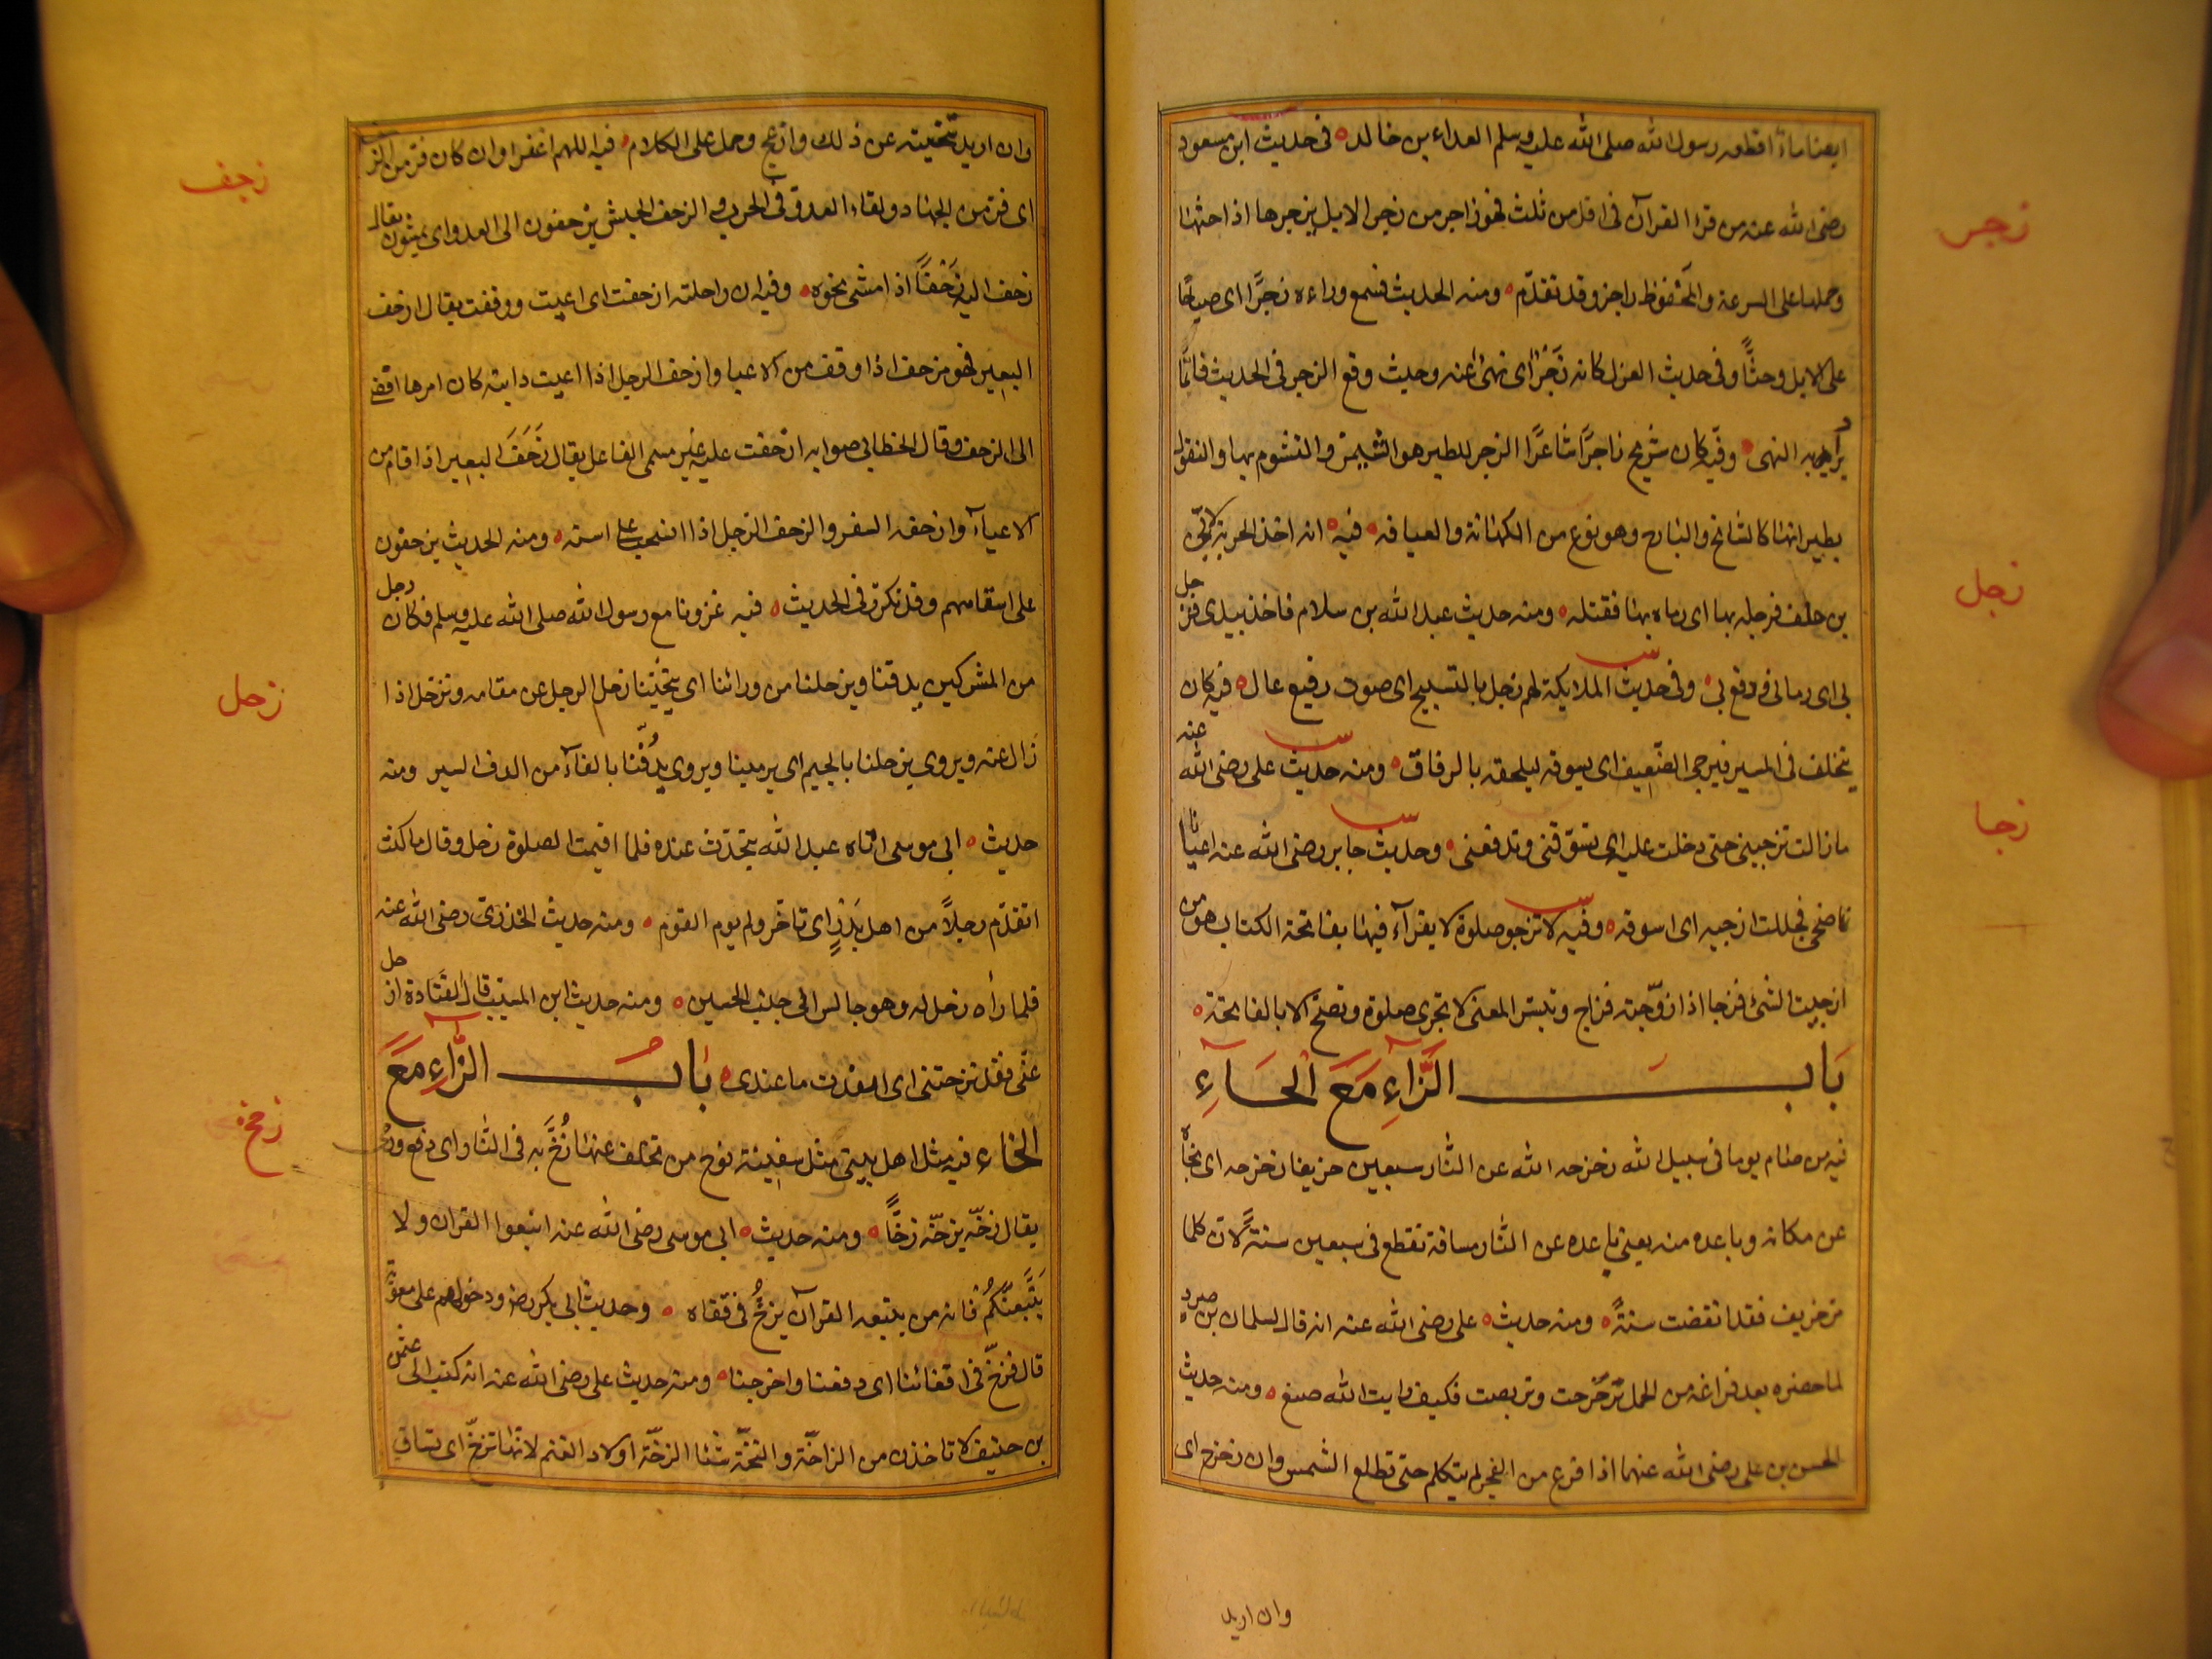 ايضا ماء اقطعه رسول الله صلى الله عليه وسلم العداء بن خالد ه فى حديث ابن مسعود
زجر
رضى الله عنه من قرا القرآن فى اقل من ثلث فهو زاجر من زجر الابل يزجرها اذا حثها
وحملها على السرعة والمحفوظ راجز وقد تقدّم ه ومنه الحديث فسمع وراءه زجرًا اى صياحًا
على الابل وحثًّا وفى حديث العزل كانه زجر اى نهى عنه وحيث وقع الزجر فى الحديث فانمّا
يراد به النهى ه وفيه كان شريح زاجرًا شاعرًا الزجر للطير هو التيمن والتشوم بها والتفول
بطيرانها كالسانح والبارح وهو نوع من الكهانة والعيافه ه فيه ه انه اخذ الحربة لابىّ
زجل
بن خلف فزجله بها اى رماه بها فقتله ه ومنه حديث عبد الله بن سلام فاخذ بيدى فزجل
بى اى رمانى ودفع بى ه وفى حديث الملايكة لهم زجل بالتسبيح اى صوت رفيع عال ه فيه كان
يتخلف فى المسير فيزجى الضّعيف اى يسوقه ليلحقه بالرفاق ه ومنه حديث على رضى الله عنه
زجا
ما زالت تزجينى حتى دخلت عليه اى تسوقنى وتدفعنى ه وحديث جابر رضى الله عنه اعيا
ناضحى فجعلت ازجيه اى اسوقه ه وفيه لا تزجو صلوة لا يقرآء فيها بفاتحة الكتاب هو من
ازجيت الشئ فزجا اذا روّجته فراج وتيسّر المعنى لا تجزى صلوة وتصح الا بالفاتحة ه
بَاب الزَّاءِ مَعَ الْحَاءِ
فيه من صام يوما فى سبيل الله زحزحه الله عن النار سبعين خريفا زحزحه اى نحّاه
عن مكانه وباعده منه يعنى باعده عن النار مسافة تقطع فى سبعين سنةً لان كلما
مر خريف فقد انقضت سنةً ه ومنه حديث ه على رضى الله عنه انه قال لسلمان بن صرد
لما حضره بعد فراغه من الجمل تزحزحت وتربصت فكيف رايت الله صنع ه ومنه حديث
الحسن بن على رضى الله عنهما اذا فرغ من الفجر لم يتكلم حتى تطلع الشمس وان زحزح اى
وان اريد
وان اريد تنحيته عن ذلك وازعج وحمل على الكلام ه فيه اللهم اغفر له وان كان فرّ من الزحف
زحف
اى فرّ من الجهاد ولقاء العدوّ فى الحرب والزحف الجيش يزحفون الى العدو اى يمشون يقال
زحف اليه زَحْفًا اذا مشى نحوه ه وفيه ان راحلته ازحفت اى اعيت ووقفت يقال ازحف
البعير فهو مزحف اذا وقف من الاعيا وازحف الرجل اذا اعيت دابته كان امرها افضى
الى الزحف وقال الخطابى صوابه ازحفت عليه غير مسمى الفاعل يقال زَحَفَ البعير اذا قام من
الاعياء وازحفه السفر والزحف الرجل اذا انسحب على استه ه ومنه الحديث يزحفون
على استاههم وقد تكرّر فى الحديث ه فيه غزونا مع رسول الله صلى الله عليه وسلم فكان رجل
زحل
من المشركين يدقنا ويزحلنا من ورائنا اى ينحّينا زحل الرجل عن مقامه وتزحل اذا
زال عنه ويروى يزجلنا بالجيم اى يرمينا ويروى يدُفّنا بالفآء من الدف السير ومنه
حديث ه ابى موسى اتاه عبد الله يتحدّث عنده فلما اقيمت الصلوة زحل وقال ما كنت
اتقدّم رجلاً من اهل بَدْرٍ اى تاخّر ولم يوم القوم ه ومنه حديث الخدرى رضى الله عنه
فلما رأه زحل له وهو جالس الى جنب الحسين ه ومنه حديث ابن المسيّب قال لقتادة ازحل
عنّى فقد نزحتنى اى انفذت ما عندى ه بَابُ الزَّاءِ مَعَ
زخخ
الخاء فيه مثل اهل بيتى مثل سفينة نوح من تخلف عنها زُخَّ به فى النّار اى دفع ورُمى
يقال زخّه يزخّه زخًّا ه ومنه حديث ه ابى موسى رضى الله عنه اتبعوا القران ولا
يَتَّبِعَنَّكُمْ فانه من يتبعه القرآن يزخُّ فى قفاه ه وحديث ابى بكرة رضه ودخولهم على معوية
قال فزخّ فى اقفائنا اى دفعنا واخرجنا ه ومنه حديث على رضى الله عنه انه كتب الى عثمن
بن حنيف لا تاخذن من الزاخّة والنخّة شئا الزخّة اولاد الغنم لانها تزخّ اى تساق